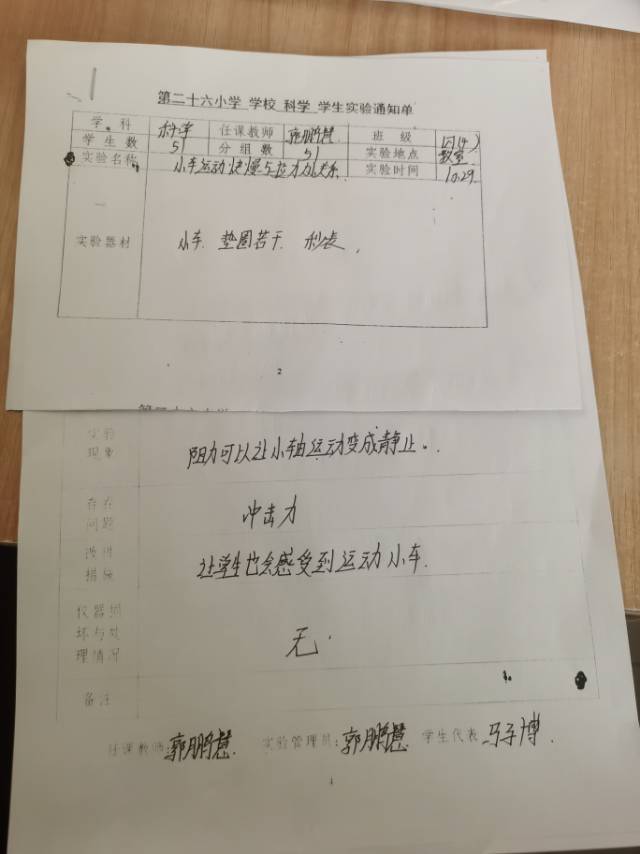 第二十六小学 学校 科学 学生实验通知单
学 科 科学 任课教师 郭鹏慧 班 级 四(4)
学生数 51 分组数 51 实验地点 教室
实验名称 小车运动快慢与拉力的关系 实验时间 10.29
一
实验器材 小车. 垫圈若干. 秒表.
2
实验
现象
阻力可以让小轴运动变成静止.
存在
问题
冲击力
改进
措施
让学生也会感受到运动小车.
仪器损
坏与处
理情况
无.
备注
任课教师:郭鹏慧. 实验管理员:郭鹏慧 学生代表 马子博.